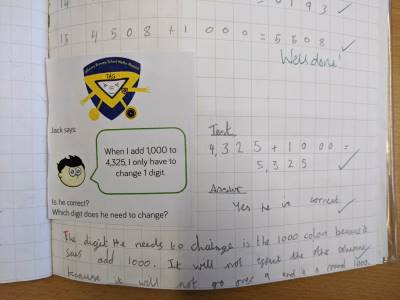 0 1 9 3
15 4 5 0 8 + 1 0 0 0 = 5 5 0 8
Well done!
TAG
Jack says:
When I add 1,000 to
4,325, I only have to
change 1 digit.
Is he correct?
Which digit does he need to change?
4,3 2 5 + 1 0 0 0 =
5,3 2 5
Answer
Yes he is correct
The digit He needs to change is the 1000 colom because
says add 1000. It will not effect the other
because it will not go over 9 and 1000.